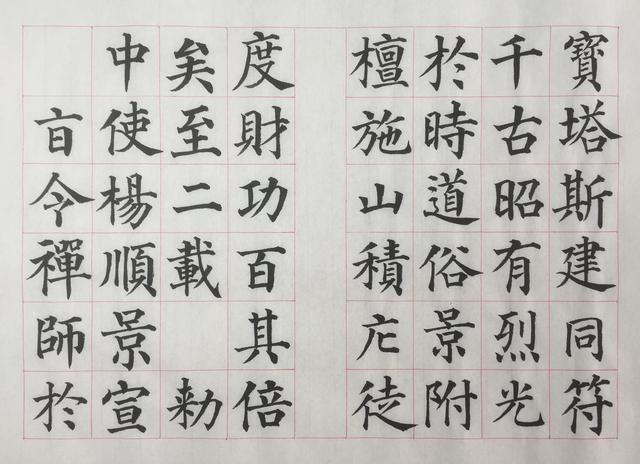 寶塔斯建同符
千古昭有烈光
於時道俗景附
檀施山積庀徒
度財功百其倍
矣至二載 勅
中使楊順景宣
旨令禪師於